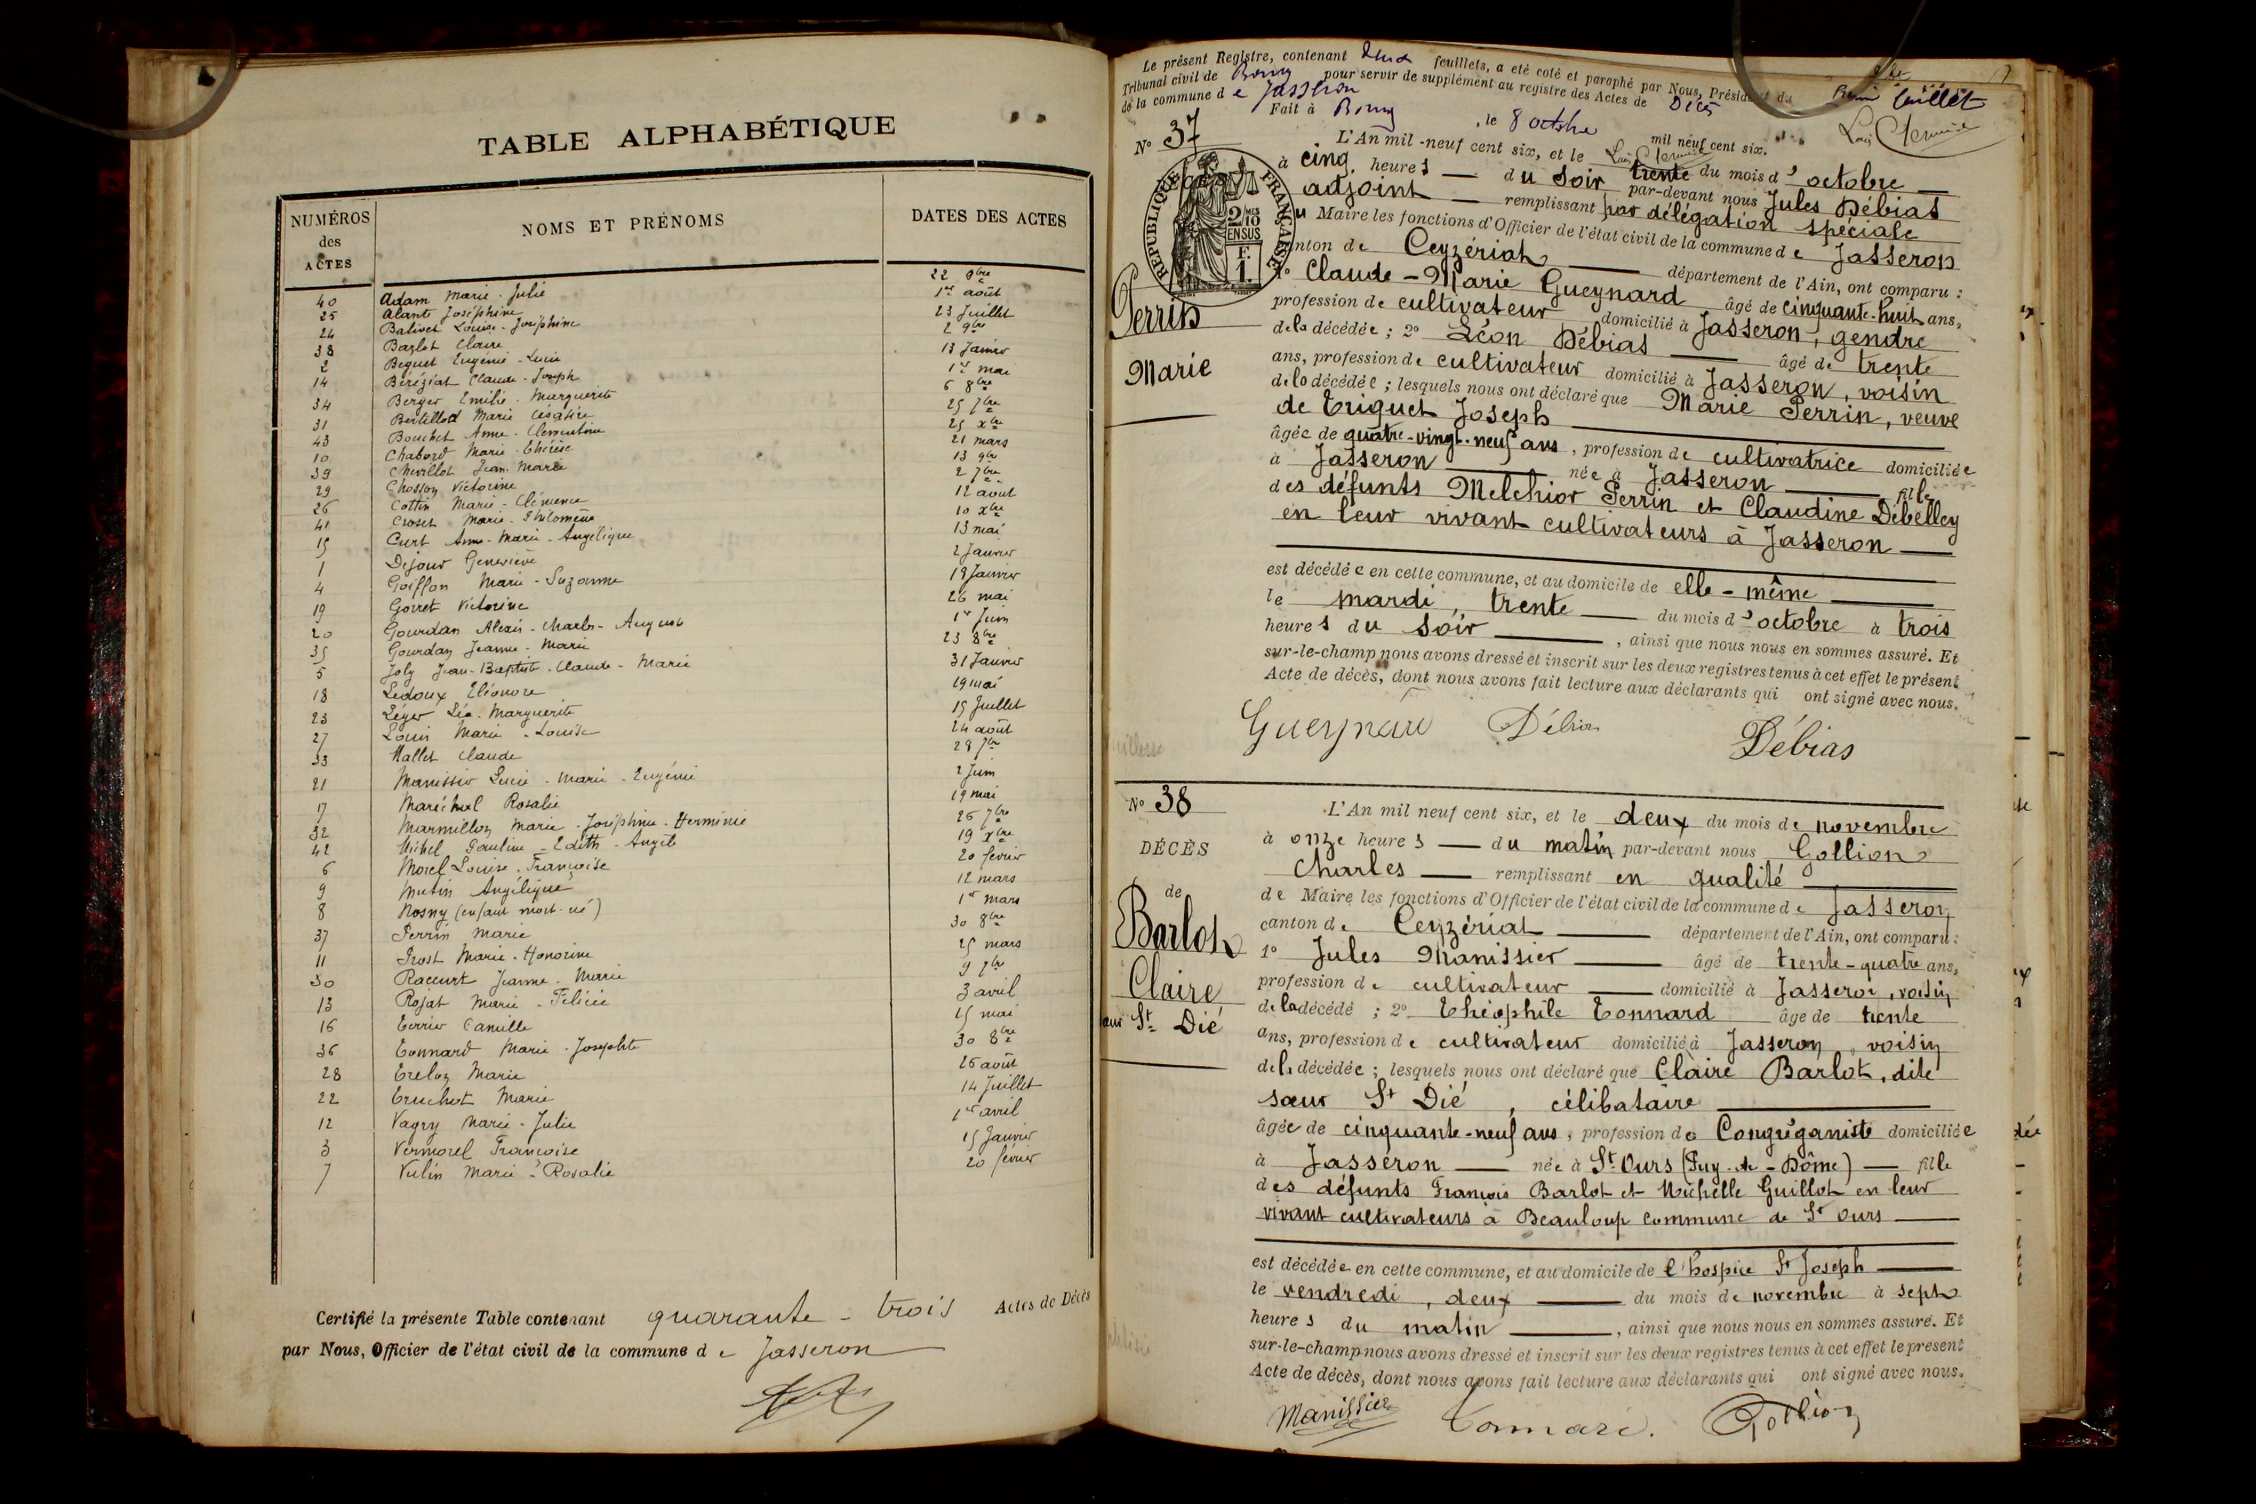 TABLE ALPHABÉTIQUE
NUMÉROS des ACTES NOMS ET PRÉNOMS DATES DES ACTES
40 Adam Marie-Julie 22 9bre
25 Alante Joséphine 1er août
24 Balivet Louise-Joséphine 23 Juillet
38 Barlot Claire 2 9bre
2 Beguet Eugénie-Lucie 13 Janvier
14 Béréziat Claude-Joseph 1er mai
34 Berger Emilie-Marguerite 6 8bre
31 Bertillod Marie Césarine 25 7bre
43 Bouchet Anne-Clementine 25 xbre
10 Chabord Marie-Thérèse 21 mars
39 Chevillot Jean-Marie 13 9bre
29 Chosson Victorine 2 7bre
26 Cottin Marie-Clémence 12 août
41 Croset Marie-Philomène 10 xbre
15 Curt Anne-Marie-Angélique 13 mai
1 Dejour Geneviève 2 Janvier
4 Goiffon Marie-Suzanne 19 Janvier
19 Gorret Victorine 26 mai
20 Gourdan Alexis-Charles-Auguste 1er Juin
35 Gourdan Jeanne-Marie 23 8bre
5 Joly Jean-Baptiste-Claude-Marie 31 Janvier
18 Ledoux Eléonore 19 mai
23 Léger Léa-Marguerite 15 Juillet
27 Louis Marie-Louise 24 août
33 Mallet Claude 28 7bre
21 Manissier Lucie-Marie-Eugénie 2 Juin
17 Maréchal Rosalie 19 mai
32 Marmillon Marie-Joséphine-Herminie 26 7bre
42 Michel Pauline-Edith-Angèle 19 xbre
6 Morel Louise-Françoise 20 février
9 Mutin Angélique 12 mars
8 Rosny (enfant mort-né) 1er mars
37 Perrin Marie 30 8bre
11 Prost Marie-Honorine 25 mars
30 Raccurt Jeanne-Marie 9 7bre
13 Rojat Marie-Félicie 3 avril
16 Terrier Camille 15 mai
36 Tonnard Marie-Josephte 30 8bre
28 Trelon Marie 26 août
22 Truchot Marie 14 Juillet
12 Vagry Marie-Julie 1er avril
3 Vermorel Françoise 15 Janvier
7 Vulin Marie-Rosalie 20 février
Certifié la présente Table contenant quarante-trois Actes de Décès
par Nous, Officier de l'état civil de la commune de Jasseron
Le présent Registre, contenant deux feuillets, a été coté et paraphé par Nous, Président du
Tribunal civil de Bourg pour servir de supplément au registre des Actes de Décès
de la commune de Jasseron
Fait à Bourg, le 8 octobre mil neuf cent six.
feuillet
No 37
REPUBLIQUE FRANÇAISE
2/10 EN SUS
F. 1.
Perrin
Marie
L'An mil-neuf cent six, et le trente du mois d'octobre
à cinq heures du soir par-devant nous Jules Débias
adjoint remplissant par délégation spéciale
du Maire les fonctions d'Officier de l'état civil de la commune de Jasseron
canton de Ceyzériat département de l'Ain, ont comparu :
1o Claude-Marie Gueynard âgé de cinquante-huit ans,
profession de cultivateur domicilié à Jasseron, gendre
de la décédée ; 2o Léon Débias âgé de trente
ans, profession de cultivateur domicilié à Jasseron, voisin
de la décédée ; lesquels nous ont déclaré que Marie Perrin, veuve
de Triquet Joseph
âgée de quatre-vingt-neuf ans, profession de cultivatrice domiciliée
à Jasseron née à Jasseron fille
des défunts Melchior Perrin et Claudine Débelley
en leur vivant cultivateurs à Jasseron
est décédée en cette commune, et au domicile de elle-même
le mardi, trente du mois d'octobre à trois
heures du soir, ainsi que nous nous en sommes assuré. Et
sur-le-champ nous avons dressé et inscrit sur les deux registres tenus à cet effet le présent
Acte de décès, dont nous avons fait lecture aux déclarants qui ont signé avec nous.
Gueynard Débias Débias
No 38
DÉCÈS
de
Barlot
Claire
sœur St Dié
L'An mil neuf cent six, et le deux du mois de novembre
à onze heures du matin par-devant nous Gollion
Charles remplissant en qualité
de Maire les fonctions d'Officier de l'état civil de la commune de Jasseron
canton de Ceyzériat département de l'Ain, ont comparu :
1o Jules Manissier âgé de trente-quatre ans,
profession de cultivateur domicilié à Jasseron, voisin
de la décédé ; 2o Théophile Tonnard âgé de trente
ans, profession de cultivateur domicilié à Jasseron, voisin
de la décédée ; lesquels nous ont déclaré que Claire Barlot, dite
sœur St Dié, célibataire
âgée de cinquante-neuf ans, profession de Congréganiste domiciliée
à Jasseron née à St Ours (Puy-de-Dôme) fille
des défunts François Barlot et Michelle Guillot en leur
vivant cultivateurs à Beauloup commune de St Ours
est décédée en cette commune, et au domicile de l'hospice St Joseph
le vendredi, deux du mois de novembre à sept
heures du matin, ainsi que nous nous en sommes assuré. Et
sur-le-champ nous avons dressé et inscrit sur les deux registres tenus à cet effet le présent
Acte de décès, dont nous avons fait lecture aux déclarants qui ont signé avec nous.
Manissier Tonnard. Gollion